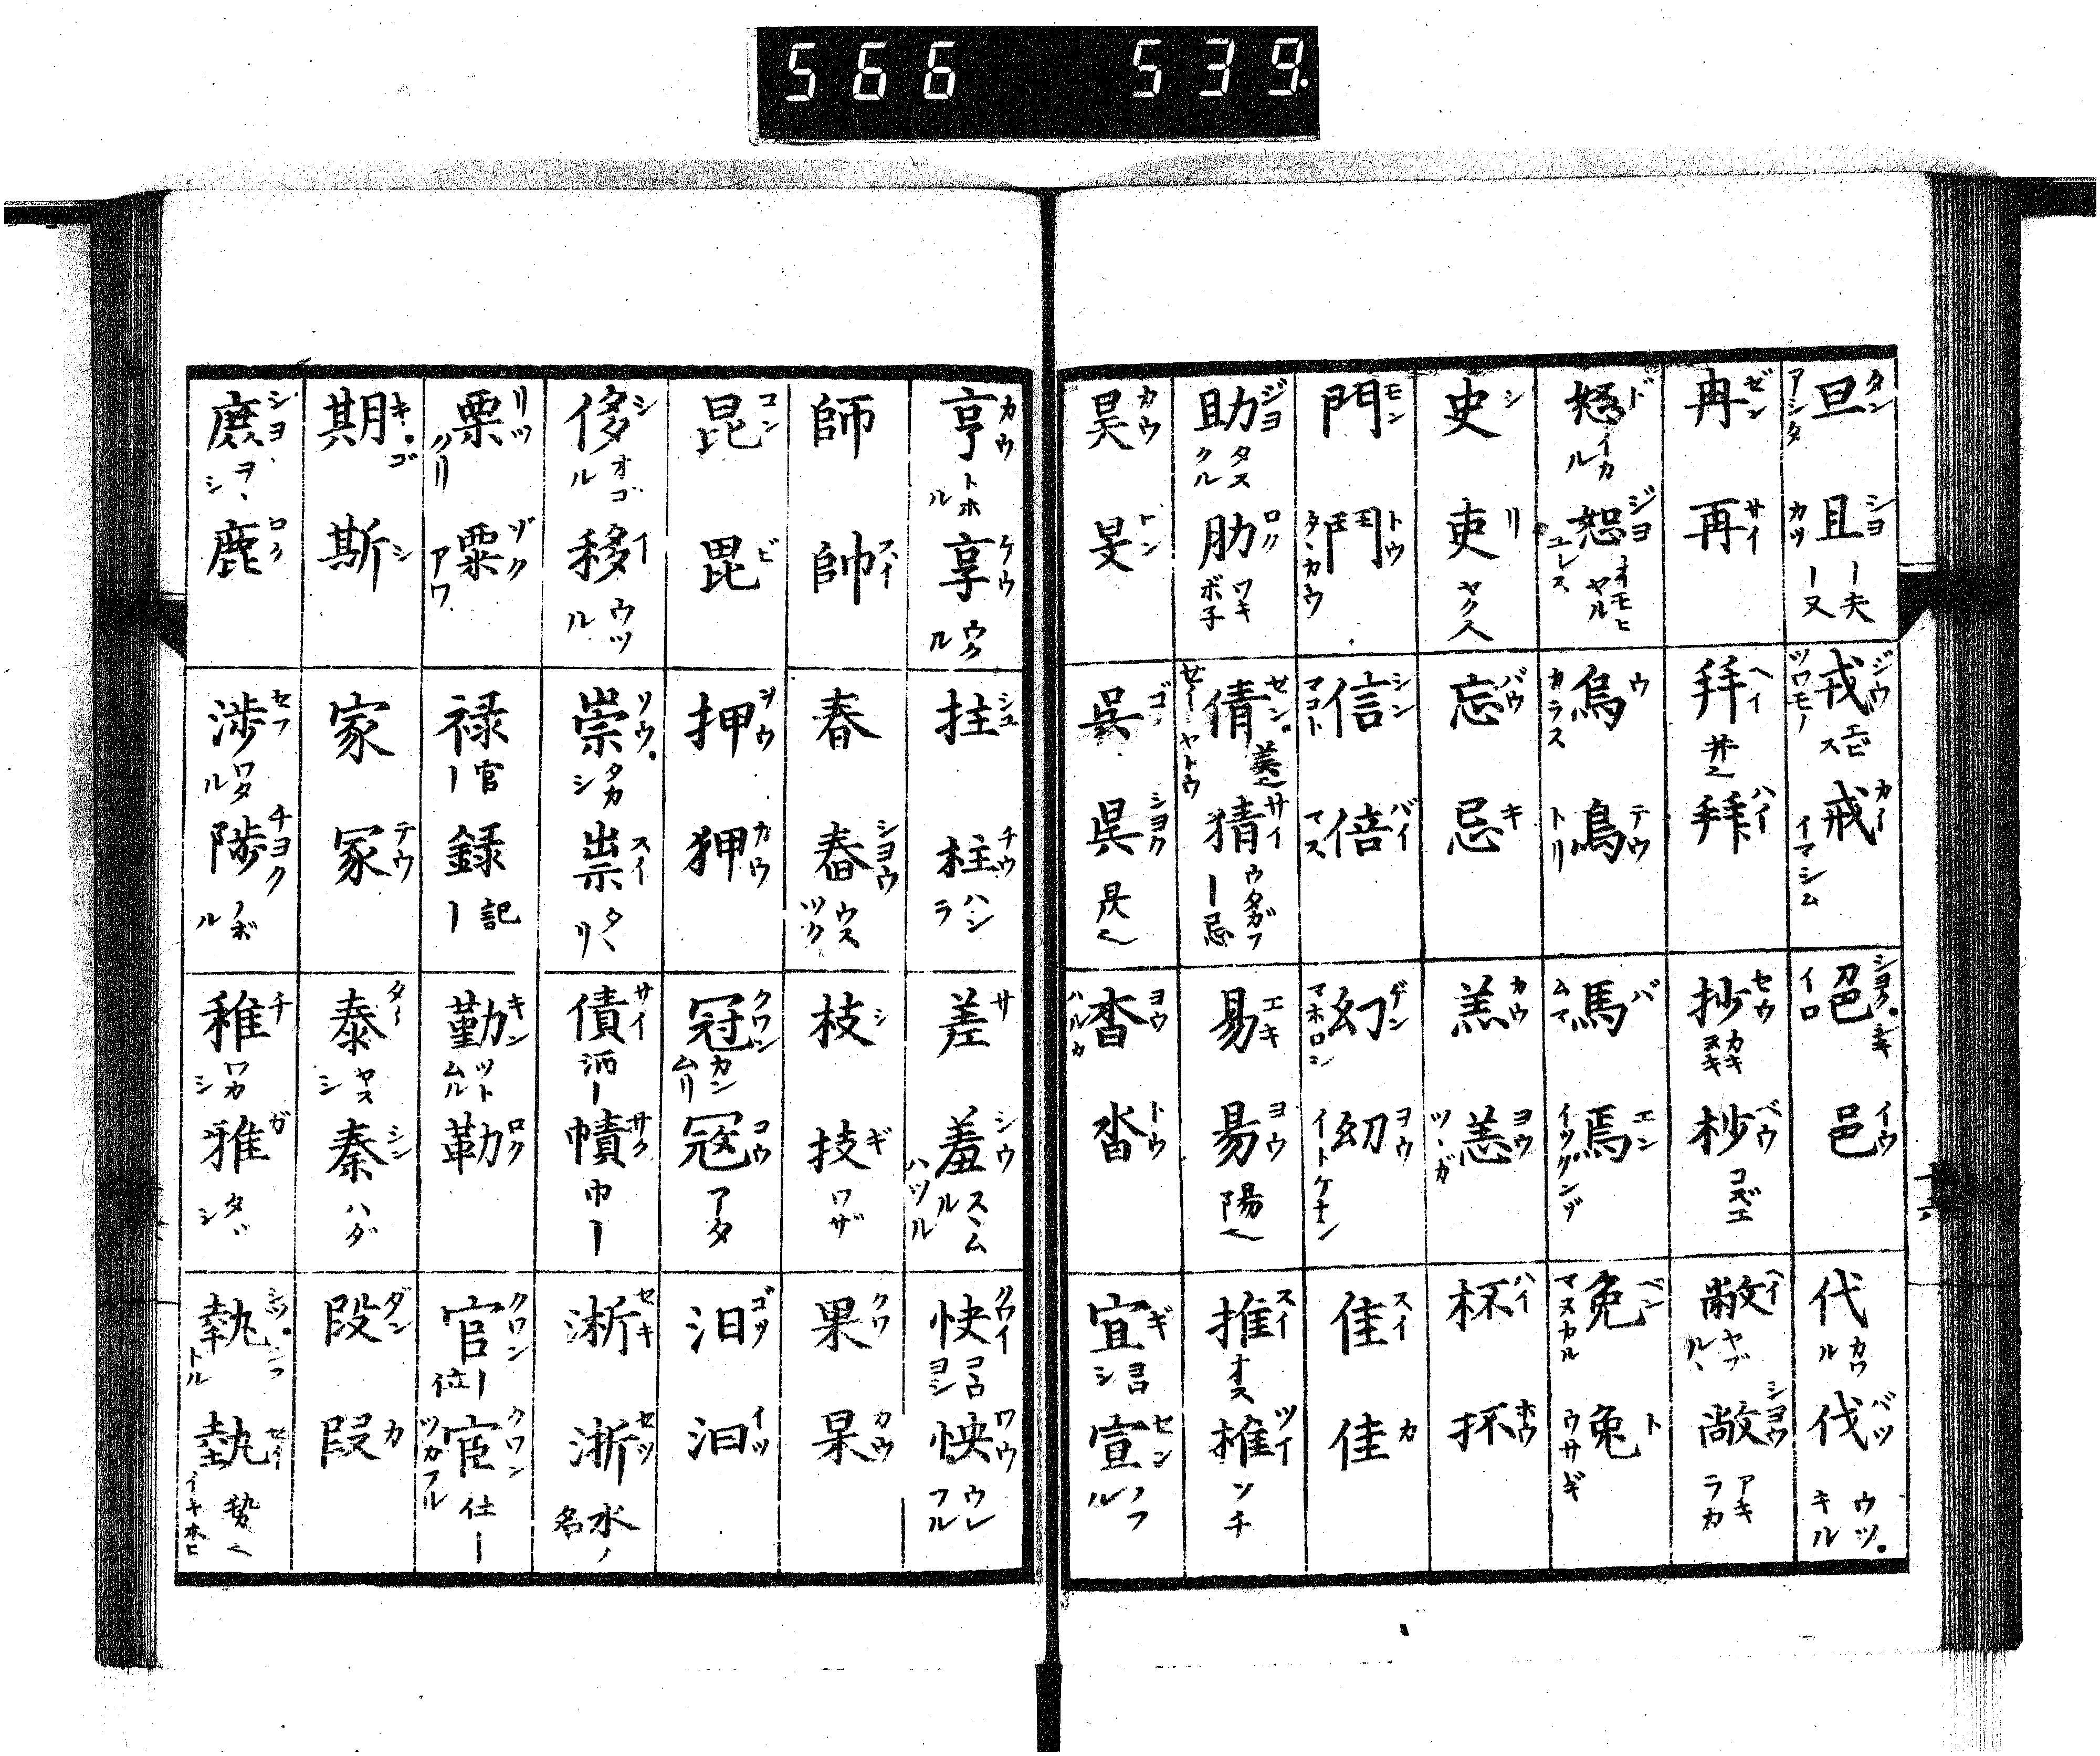 566 539.
旦 タン アシタ 且 シヨ カツ ー夫 ー又
戎 ジウ ツワモノ エビス 戒 カイ イマシム
色 シヨク シキ イロ 邑 イウ
代 カワル 伐 バツ ウツ キル
冉 ゼン 再 サイ
拝 ヘイ 拜 ハイ
抄 セウ カキヌキ 杪 ベウ コズエ
敝 ヘイ ヤブルヽ 敞 シヨウ アキラカ
怒 ド イカル 恕 ジヨ オモヒヤル ユレス
烏 ウ カラス 鳥 テウ トリ
馬 バ ムマ 焉 エン イヅクンゾ
免 ベン マヌカル 兔 ト ウサギ
史 シ 吏 リ ヤク人
忘 バウ 忌 キ
羔 カウ 恙 ヨウ ツヽガ
杯 ハイ 抔 ホウ
門 モン 鬥 トウ タヽカウ
信 シン マコト 倍 バイ マス
幻 ゲン マホロシ 幼 ヨウ イトケナシ
隹 スイ 佳 カ
助 ジヨ タスクル 肋 ロク ワキボ子
倩 セン 美 ヤトウ 猜 サイ ウタガフ ー忌
易 エキ 昜 ヨウ 陽
推 スイ オス 椎 ツイ ツチ
昊 カウ 旻
吳 ゴ
杳 ヨウ ハルカ 沓 トウ
宜 ギ 宣 セン
亨 カウ トホル 享 ケウ ウクル
拄 シユ 柱 チウ ハシラ
差 サ 羞 シウ スヽム ハツル
快 クワイ コヽロヨシ 怏 ワウ
師 帥 スイ
春 舂 シヨウ ウスツク
枝 シ 技 ギ ワザ
果 クワ 杲 カウ
昆 コン 毘 ビ
押 ヲウ 狎 カウ
冠 クワン カンムリ 寇 コウ アタ
汨 ゴツ 汩 イツ
侈 シ オゴル 移 イ ウツル
崇 ソウ タカシ 祟 スイ タヽリ
債 サイ 幘 サク 巾ー
淅 セキ 浙 セツ 水ノ名
栗 リツ クリ 粟 ゾク アワ
禄 官ー 録 記ー
勤 キン ツトムル 勒 ロク
官 クワン 位ー 宦 クワン ツカフル 仕ー
期 キ ゴ 斯 シ
家 冢 テウ
泰 タイ ヤスシ 秦 シン ハダ
段 ダン 叚 カ
庶 シヨ 鹿 ロク
渉 セフ ワタル 陟 チヨク ノボル
稚 チ ワカシ 雅 ガ タヾシ
執 シツ トル 埶 セイ イキホヒ